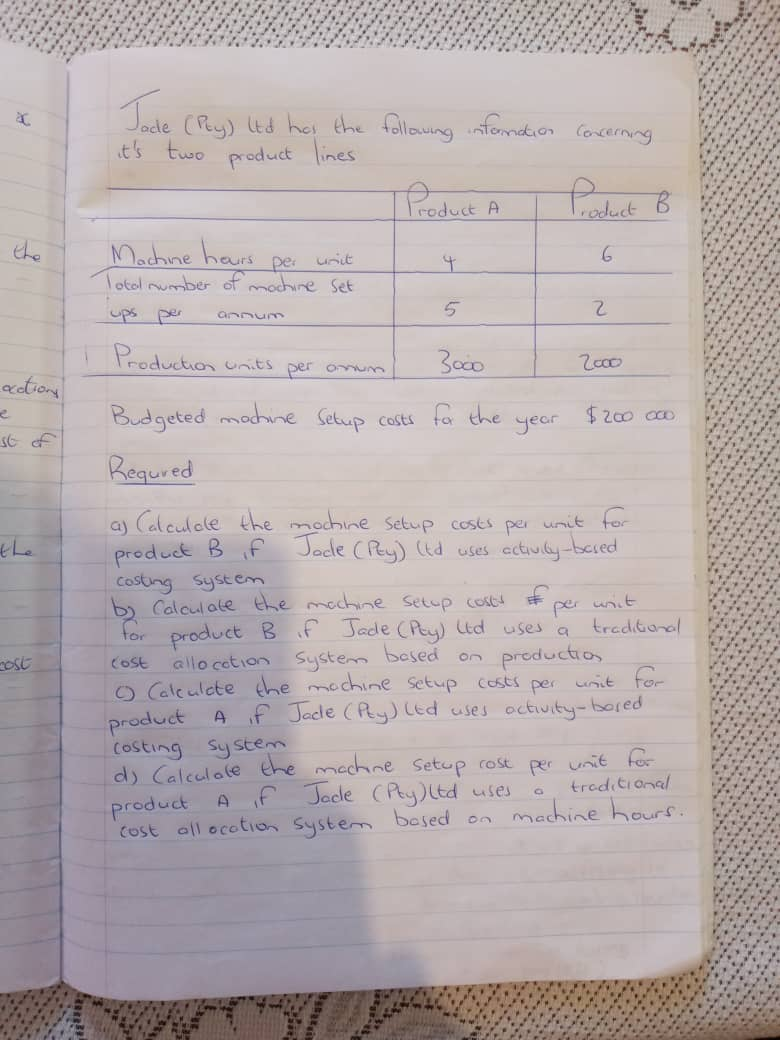 x
Jade (Pty) Ltd has the following information concerning
it's two product lines
Product A Product B
the
Machine hours per unit 4 6
Total number of machine set
ups per annum 5 2
Production units per annum 3000 2000
ocations
e
Budgeted machine setup costs for the year $200 000
st of
Requred
a) Calculate the machine setup costs per unit for
the
product B if Jade (Pty) Ltd uses activity-based
costing system
b) Calculate the machine setup costs per unit
for product B if Jade (Pty) Ltd uses a traditional
cost
cost allocation system based on production
c) Calculate the machine setup costs per unit for
product A if Jade (Pty) Ltd uses activity-based
costing system
d) Calculate the machine setup cost per unit for
product A if Jade (Pty) Ltd uses a traditional
cost allocation system based on machine hours.